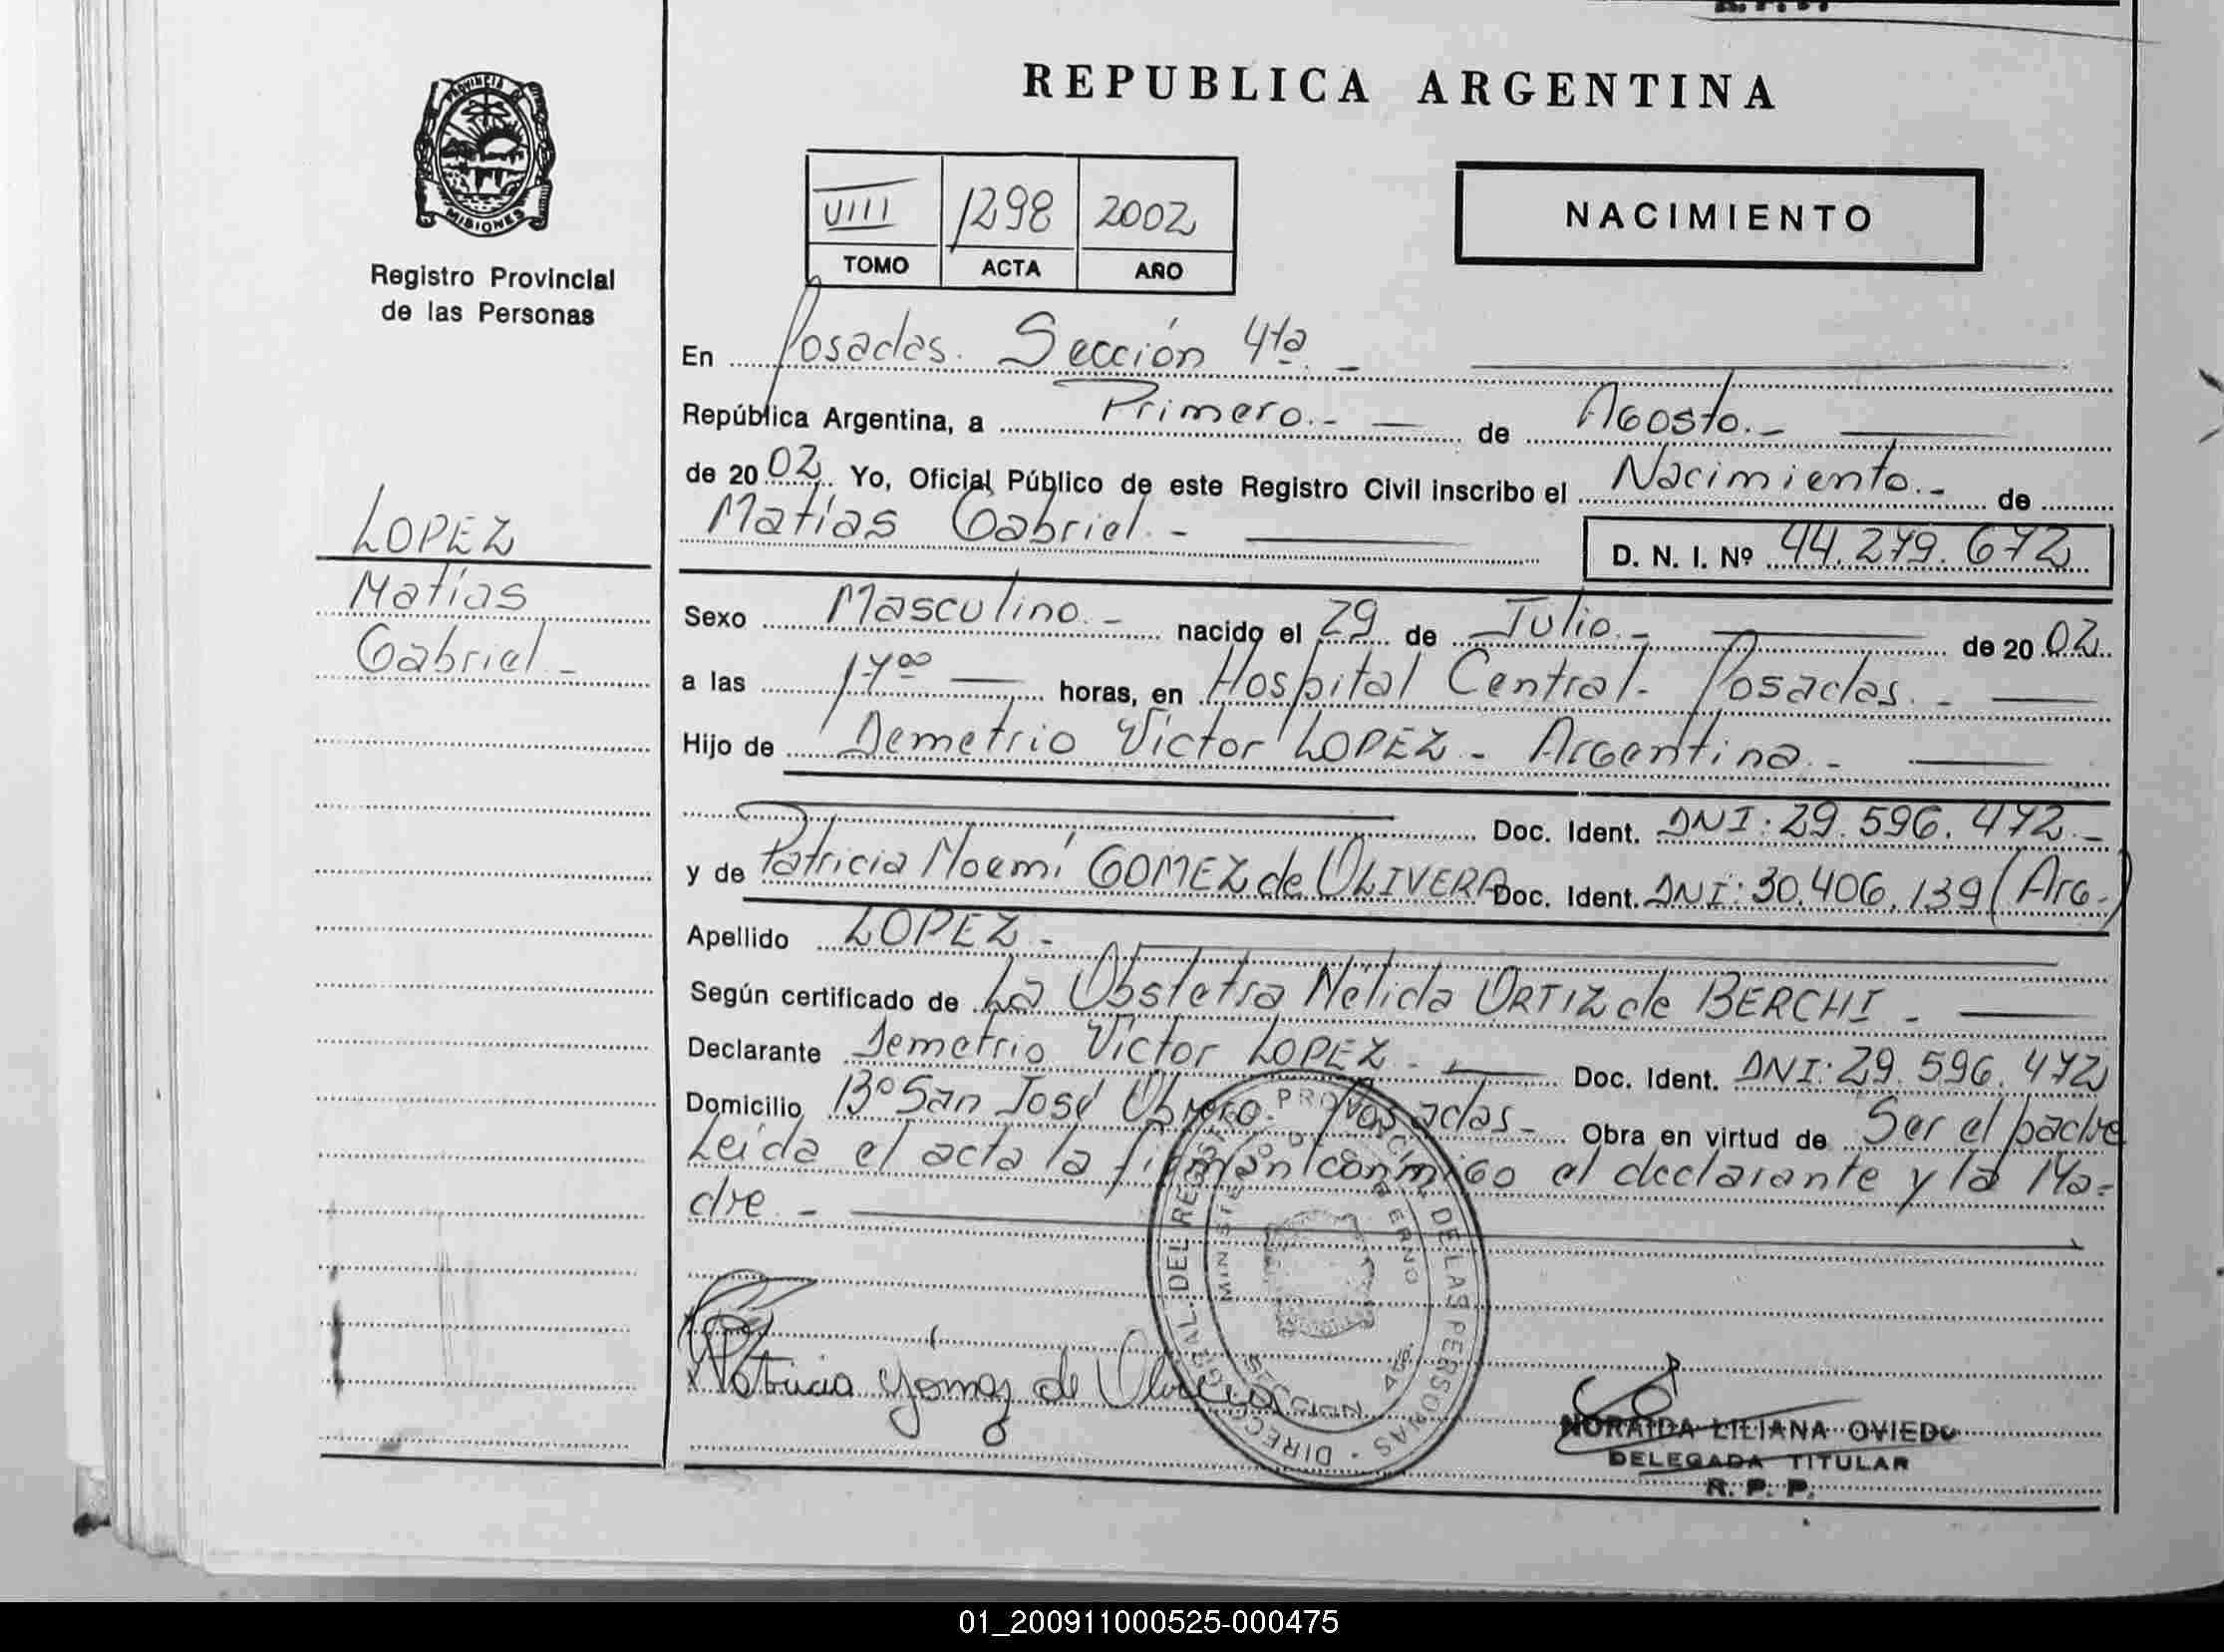 REPUBLICA ARGENTINA
PROVINCIA DE
MISIONES
Registro Provincial
de las Personas
VIII 1298 2002
TOMO ACTA AÑO
NACIMIENTO
LOPEZ
Matías
Gabriel -
En Posadas. Sección 4ta. -
República Argentina, a Primero. - de Agosto. -
de 2002. Yo, Oficial Público de este Registro Civil inscribo el Nacimiento. - de
Matías Gabriel. - D. N. I. Nº 44.279.672
Sexo Masculino. - nacido el 29 de Julio. - de 2002
a las 17⁰⁰ horas, en Hospital Central - Posadas. -
Hijo de Demetrio Víctor LOPEZ - Argentina. -
Doc. Ident. DNI: 29.596.472. -
y de Patricia Noemí GOMEZ de OLIVERA Doc. Ident. DNI: 30.406.139 (Arg.)
Apellido LOPEZ -
Según certificado de La Obstetra Nélida ORTIZ de BERCHI -
Declarante Demetrio Víctor LOPEZ - Doc. Ident. DNI: 29.596.472
Domicilio Bº San José Obrero - Posadas - Obra en virtud de Ser el padre
Leida el acta la firman conmigo el declarante y la Ma-
dre. -
DIRECC. GRAL. DEL REGISTRO PROVINCIAL DE LAS PERSONAS
MINISTERIO DE GOBIERNO
SECCION 4ta.
Patricia Gómez de Olivera
NORAIDA LILIANA OVIEDO
DELEGADA TITULAR
R. P. P.
01_200911000525-000475